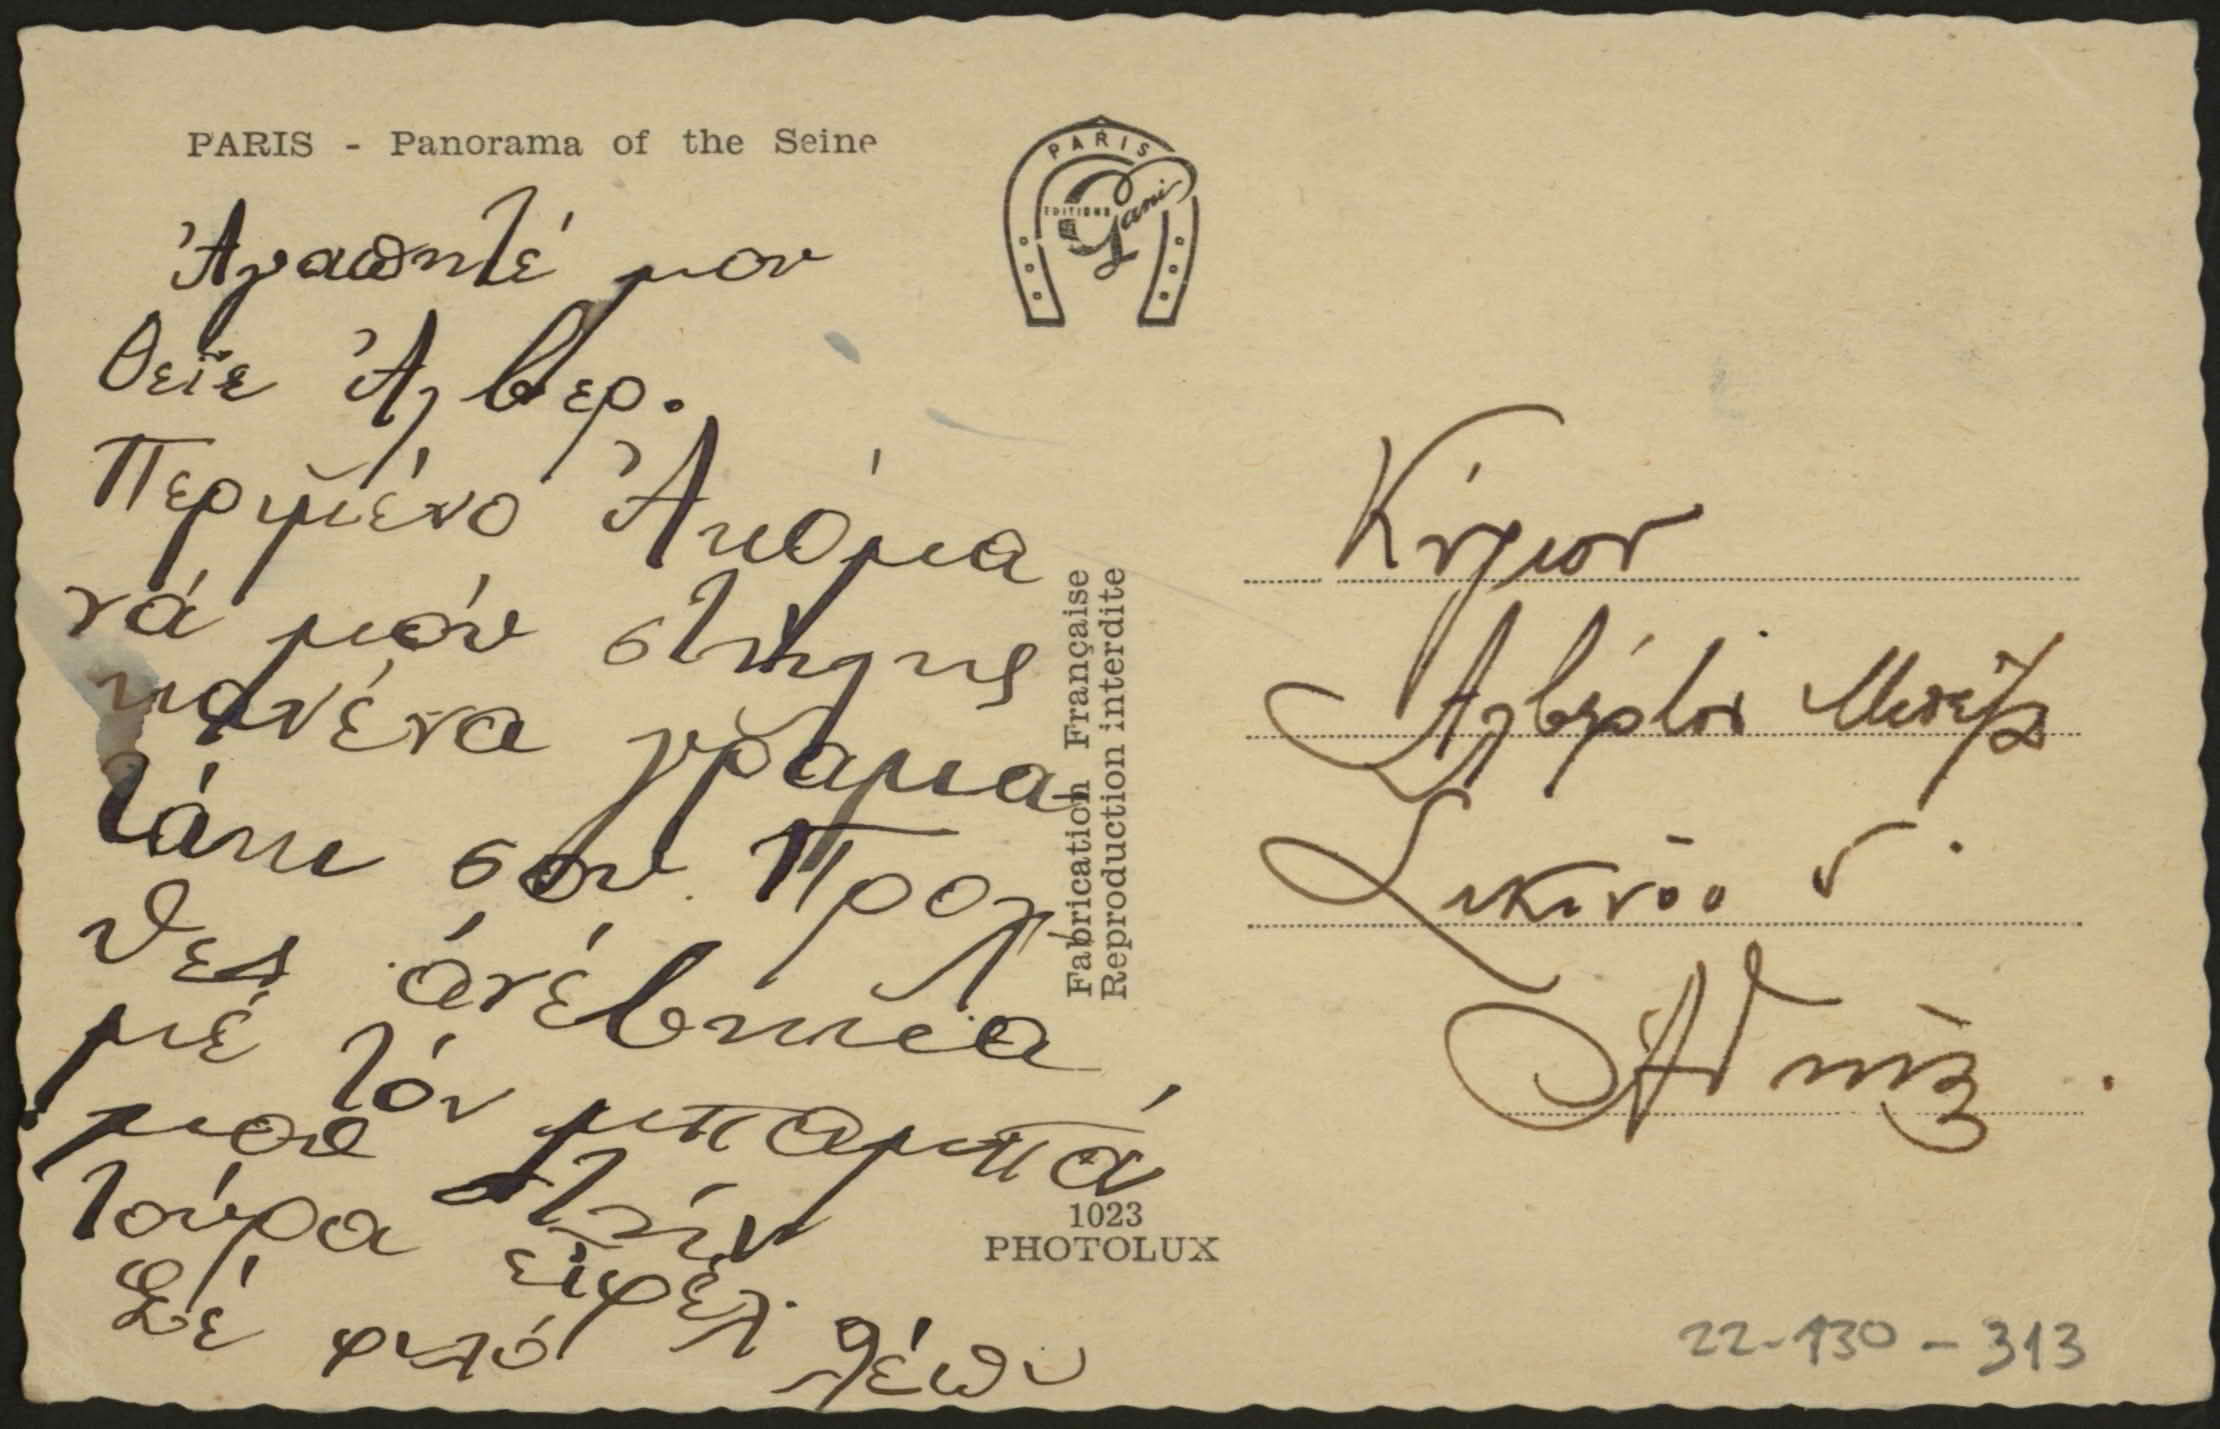 PARIS - Panorama of the Seine
PARIS
EDITIONS
Gani
Ἀγαπητέ μου
Θείε Ἀλβερ.
Περιμένο Ἀκόμα
νά μού στήλης
κανένα γραμα
τάκι σου Προχ
θες ἀνέβηκα
μέ τόν μπαμπά
μου στήν
τούρα εἰφελ.
Σέ φιλό
Fabrication Française
Reproduction interdite
1023
PHOTOLUX
Κύριον
Ἀλβέρτον
Σικίνου
Ἀθήνα
22-130-313